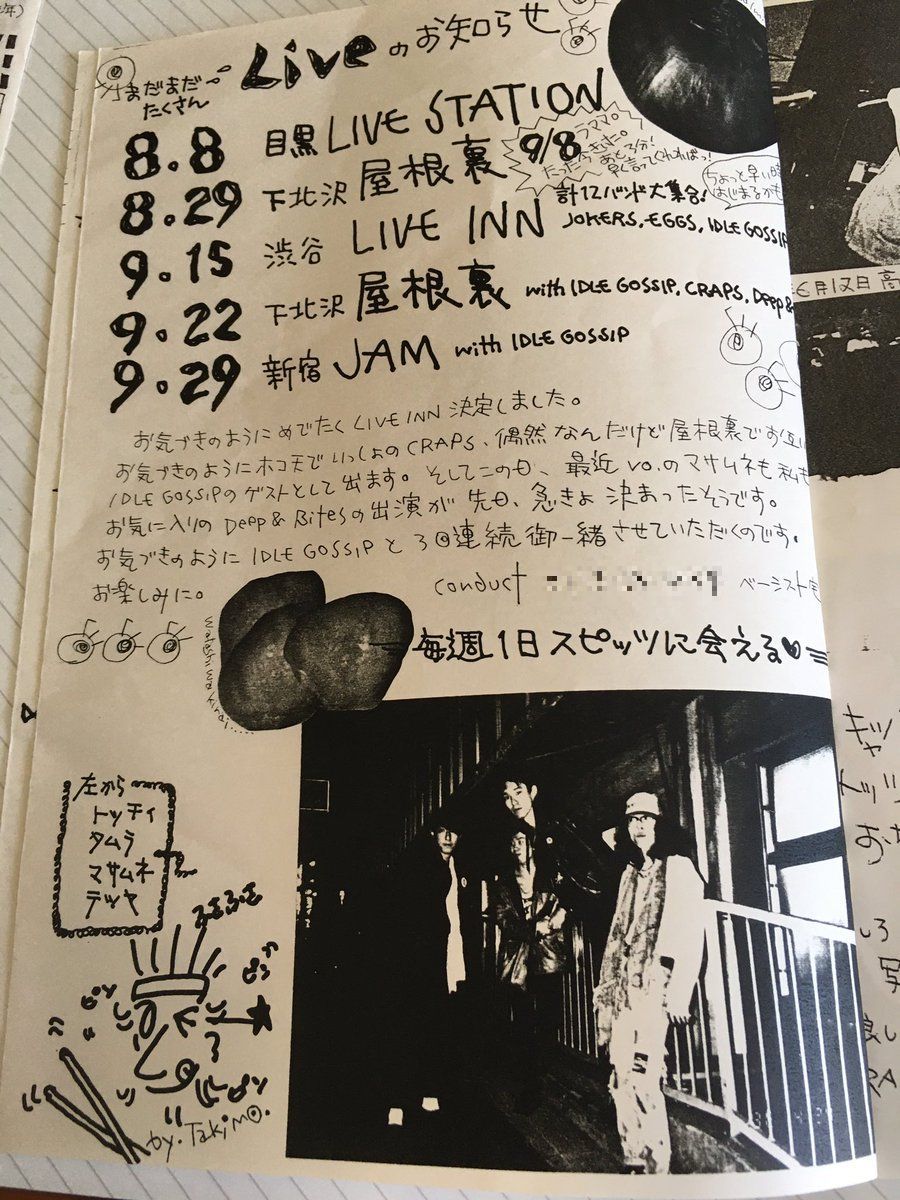 年)
Liveのお知らせ
まだまだ
たくさん
8.8 目黒 LIVE STATION
8.29 下北沢 屋根裏
9/8
ラママ。
あと3分!
ちょっと早い時
はじまるかも
計12バンド大集合!
9.15 渋谷 LIVE INN JOKERS, EGGS, IDLE GOSSIP
9.22 下北沢 屋根裏 with IDLE GOSSIP, CRAPS, Deep &
9.29 新宿 JAM with IDLE GOSSIP
6月12日
お気づきのようにめでたく LIVE INN 決定しました。
お気づきのようにホコ天でいっしょのCRAPS、偶然なんだけど屋根裏でお互い
IDLE GOSSIPのゲストとして出ます。そしてこの日、最近 vo.のマサムネも私も
お気に入りの Deep & Bitesの出演が先日、急きょ決まったそうです。
お気づきのように IDLE GOSSIP と 3回連続御一緒させていただくのです。
お楽しみに。
conduct
ベーシスト
watashi wa kirai.....
毎週1日スピッツに会える♥
左から
トッティ
タムラ
マサムネ
テツヤ
ふさふさ
by. Takimo.